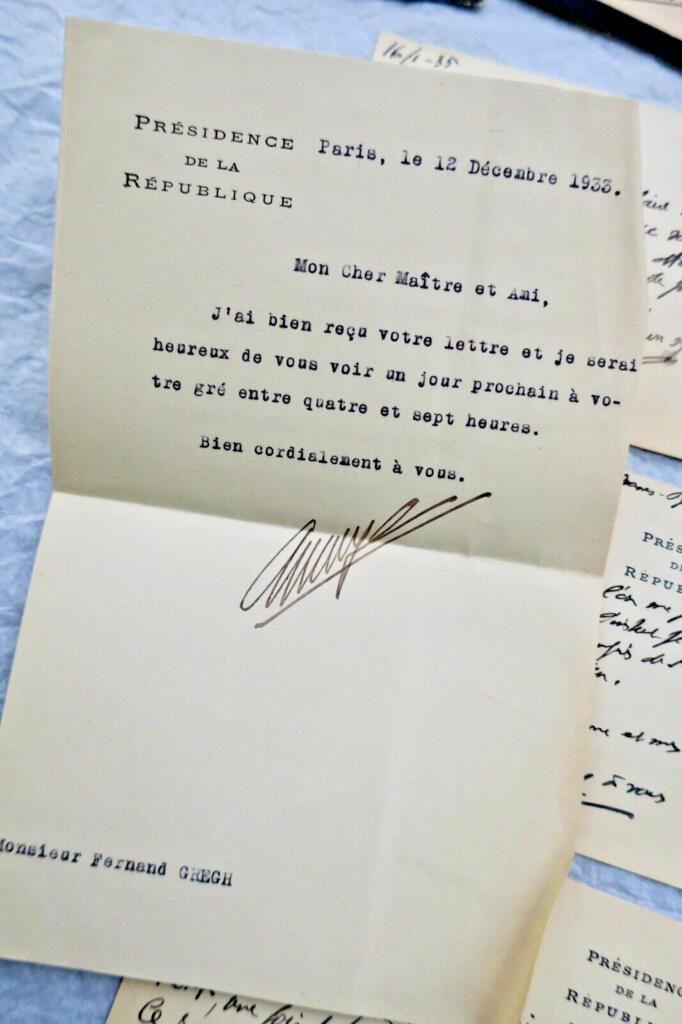 16/1-35
PRÉSIDENCE
DE LA
RÉPUBLIQUE
Paris, le 12 Décembre 1933.
Mon Cher Maître et Ami,
J'ai bien reçu votre lettre et je serai
heureux de vous voir un jour prochain à vo-
tre gré entre quatre et sept heures.
Bien cordialement à vous.
Monsieur Fernand GREGH
PRÉS
D
RÉPUB
à vous
PRÉSIDENC
DE LA
RÉPUBLI